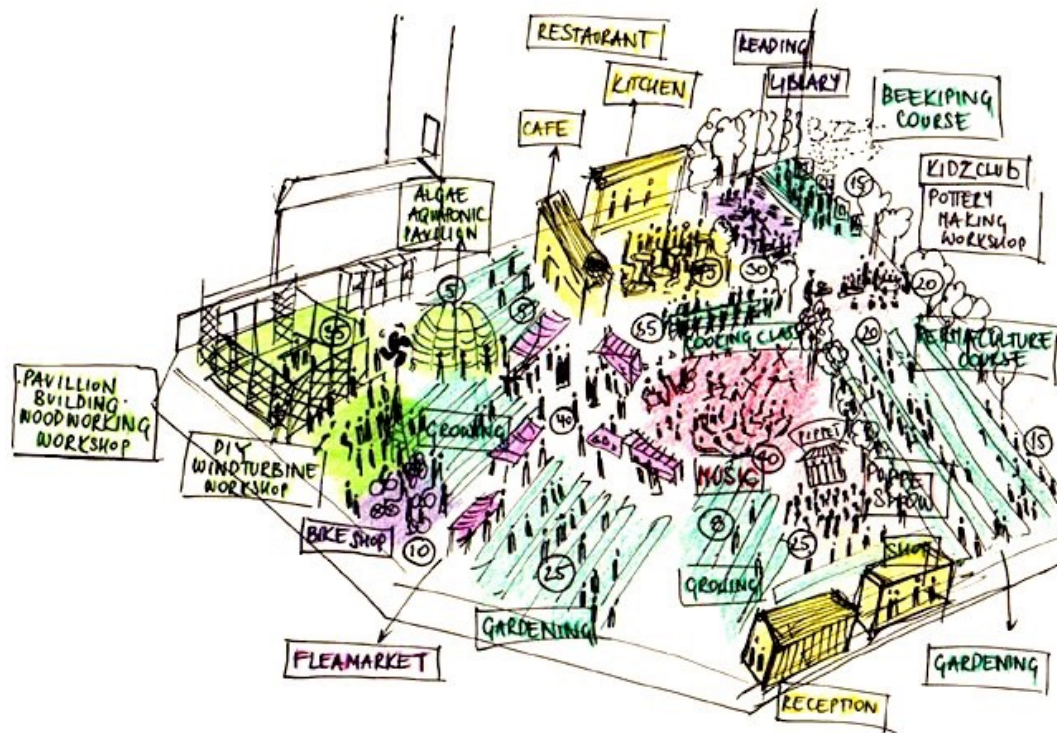 RESTAURANT
READING
LIBRARY
KITCHEN
BEEKIPING
COURSE
CAFE
KIDZCLUB
POTTERY
MAKING
WORKSHOP
15
ALGAE
AQUAPONIC
PAVILIGN
5
8
45
30
20
65
COOKING CLASS
20
PERMACULTURE
COURSE
PAVILLION
BUILDING-
WOODWORKING
WORKSHOP
DIY
WINDTURBINE
WORKSHOP
GROWING
40
MUSIC
40
PUPPET
PUPPE
SHOW
15
BIKE SHOP
10
25
8
25
SHOP
GROWING
GARDENING
FLEAMARKET
GARDENING
RECEPTION